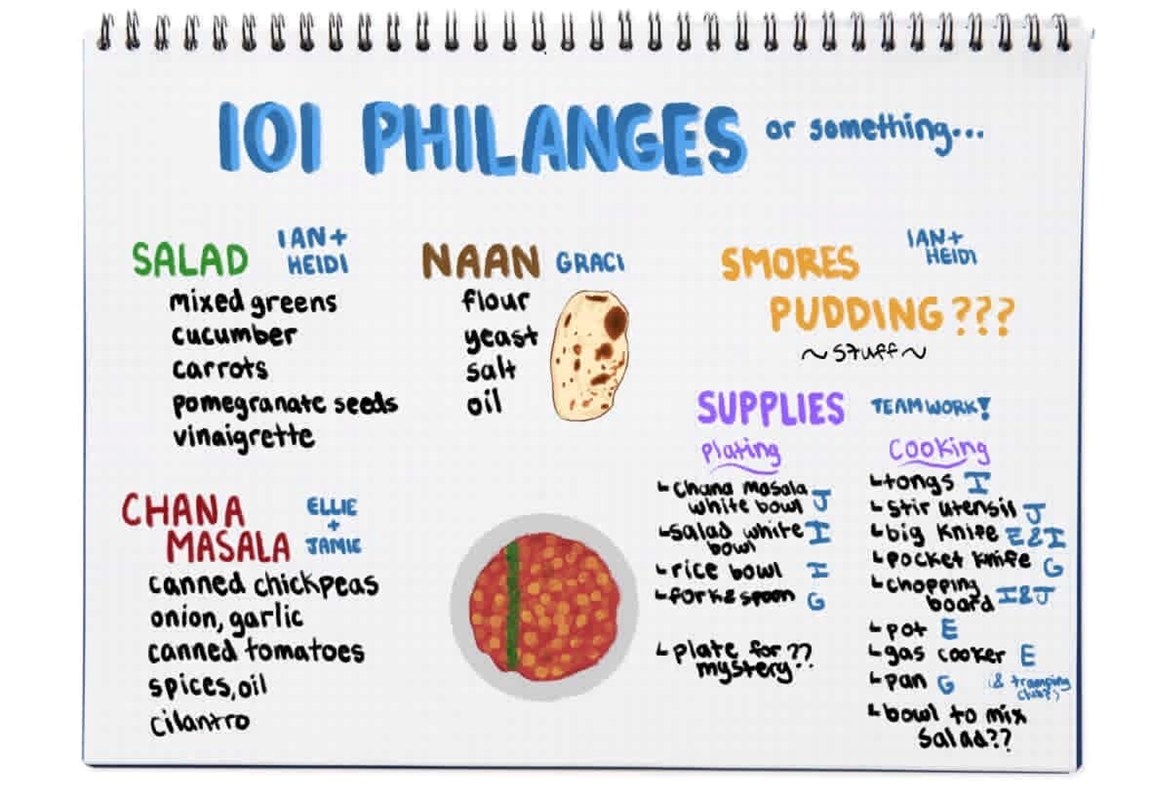 101 PHILANGES or something...
SALAD IAN +
HEIDI
mixed greens
cucumber
carrots
pomegranate seeds
vinaigrette
NAAN GRACI
flour
yeast
salt
oil
SMORES IAN +
HEIDI
PUDDING???
~stuff~
CHANA
MASALA
ELLIE
+
JAMIE
canned chickpeas
onion, garlic
canned tomatoes
spices, oil
cilantro
SUPPLIES TEAMWORK!
Plating
↳chana masala
white bowl J
↳salad white I
bowl
↳rice bowl I
↳fork & spoon G
↳plate for ??
mystery??
Cooking
↳tongs I
↳stir utensil J
↳big knife E & I
↳pocket knife G
↳chopping
board I & J
↳pot E
↳gas cooker E
↳pan G (& tramping
club?)
↳bowl to mix
salad??